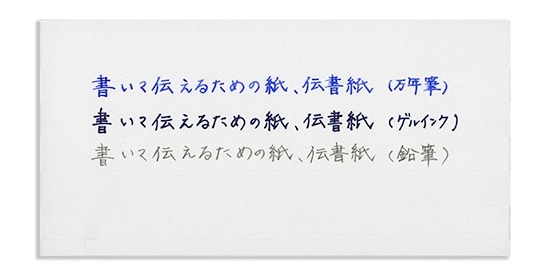 書いて伝えるための紙、伝書紙（万年筆）
書いて伝えるための紙、伝書紙（ゲルインク）
書いて伝えるための紙、伝書紙（鉛筆）